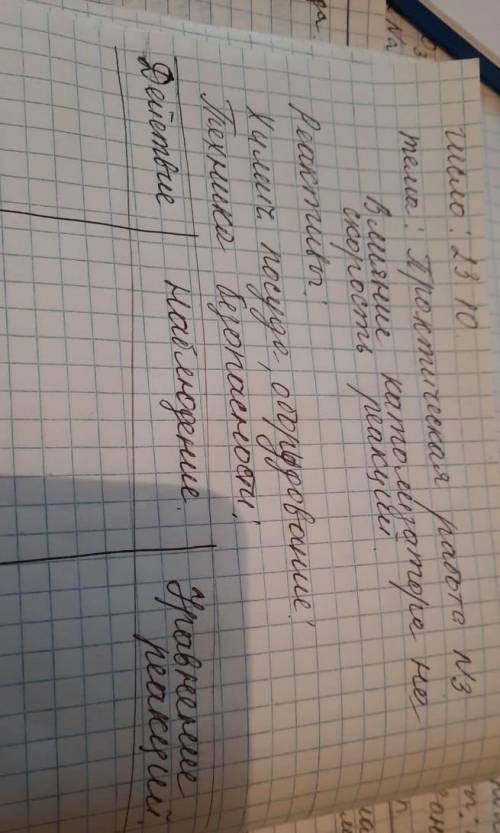 число: 23.10.
тема: Практическая работа N3
Влияние катализатора на
скорость реакции.
Реактивы:
Химич. посуда, оборудование:
Техника безопасности:
Действие
Наблюдение.
Уравнение
реакций